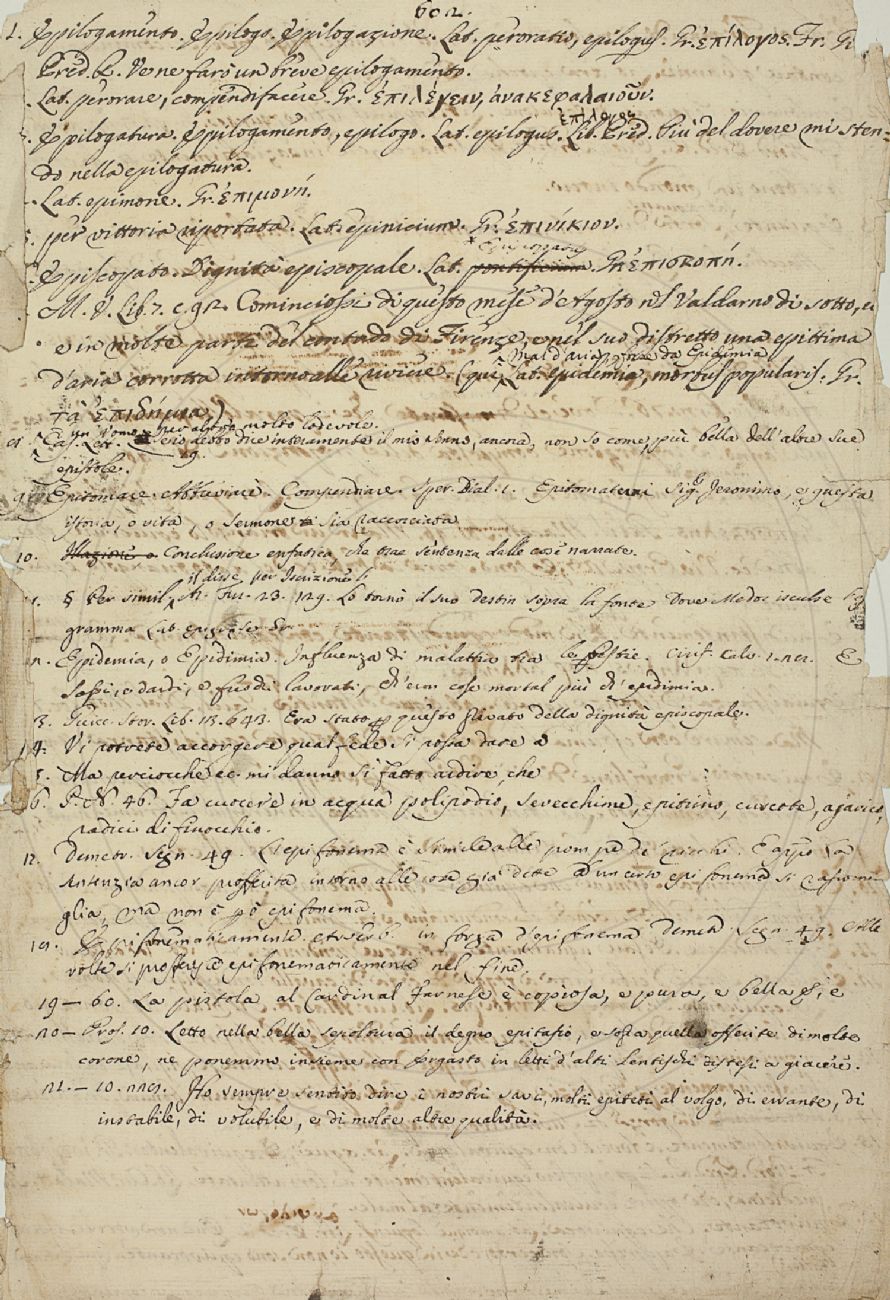 602.
1. Epilogamento. Epilogo. Epilogazione. Lat. peroratio, epilogus. Gr. ἐπίλογος. Fr. G
Pred. Q. Ve ne farò un breve epilogamento.
Lat. perorare, compendifacere. Gr. ἐπιλέγειν, ἀνακεφαλαιοῦν.
ἐπίλογος
Epilogatura. Epilogamento, epilogo. Lat. epilogus. Lib. Pred. Più del dovere mi sten-
do nella epilogatura.
Lat. epimone. Gr. ἐπιμονή.
per vittoria riportata. Lat. epinicium. Gr. ἐπινίκιον.
Episcopato. Dignità episcopale. Lat. pontificium Gr. ἐπισκοπή.
M. V. Lib. 7. c. 92. Cominciossi di questo mese d'Agosto nel Valdarno di sotto, e
e in molte parti del contado di Firenze, e nel suo distretto una epittima
Mal d'aria, viene da Epidimia
d'aria corrotta intorno alle riviere. (qui Lat. epidemia, morbus popularis: Gr.
τὰ ἐπιδήμια)
per altro molto lodevole.
Cas. Lett. 29. e adesso dire interamente il mio senno, ancora, non so come, più bella dell'altre sue
epistole.
9. Epitomare. Abbreviare. Compendiare. Sper. Dial. 1. Epitomatemi Sig. Jeronimo, e questa
istoria, o vita, o sermone si sia raccorciata
10. Illazione, o Conclusione enfatica, che trae sentenza dalle cose narrate.
il disse per Inscrizione
1. § Per simil. Ar. Fur. 23. 129. Lo tornò il suo destin sopra la fonte Dove Medor isculse l'
gramma Lat.
12. Epidemia, o Epidimia. Influenza di malattia tra le bestie. Ciriff. Calv. 1. E
Sassi, e dardi, e fuochi lavorati, Ch'eran cose mortal più ch'epidimia.
3. Guicc. Stor. Lib. 13. 643. Era stato per questo privato della dignità episcopale.
14. Vi potrete accorgere qual fede si possa dare a
5. Ma perciocchè ec. mi danno sì fatto ardire, che
6. R. N. 46. Fa cuocere in acqua polipodio, severchine, epitimo, cuscote, agarico,
radici di finocchio.
17. Demetr. Segn. 49. L'epifonema è simile alle pompe de' ricchi. E appo La
sentenzia ancor profferita intorno alle cose già dette ad un certo epifonema si rassomi
glia, ma non è però epifonema.
18. Epifonematicamente. Avverb. in forza d'epifonema Demetr. Segn. 49. Alle
volte si profferisce epifonematicamente nel fine.
19 — 60. La pistola al Cardinal Farnese è copiosa, e pura, e bella sì, e
20 — Pros. 10. Letto nella bella sepoltura il degno epitafio, e sopra quella offerite di molte
corone, ne ponemmo insieme con Ergasto in letti d'alti Lentischi distesi a giacere.
21. — 10. Ho sempre sentito dire i nostri savi, molti epiteti al volgo, di errante, di
instabile, di volubile, e di molte altre qualità.